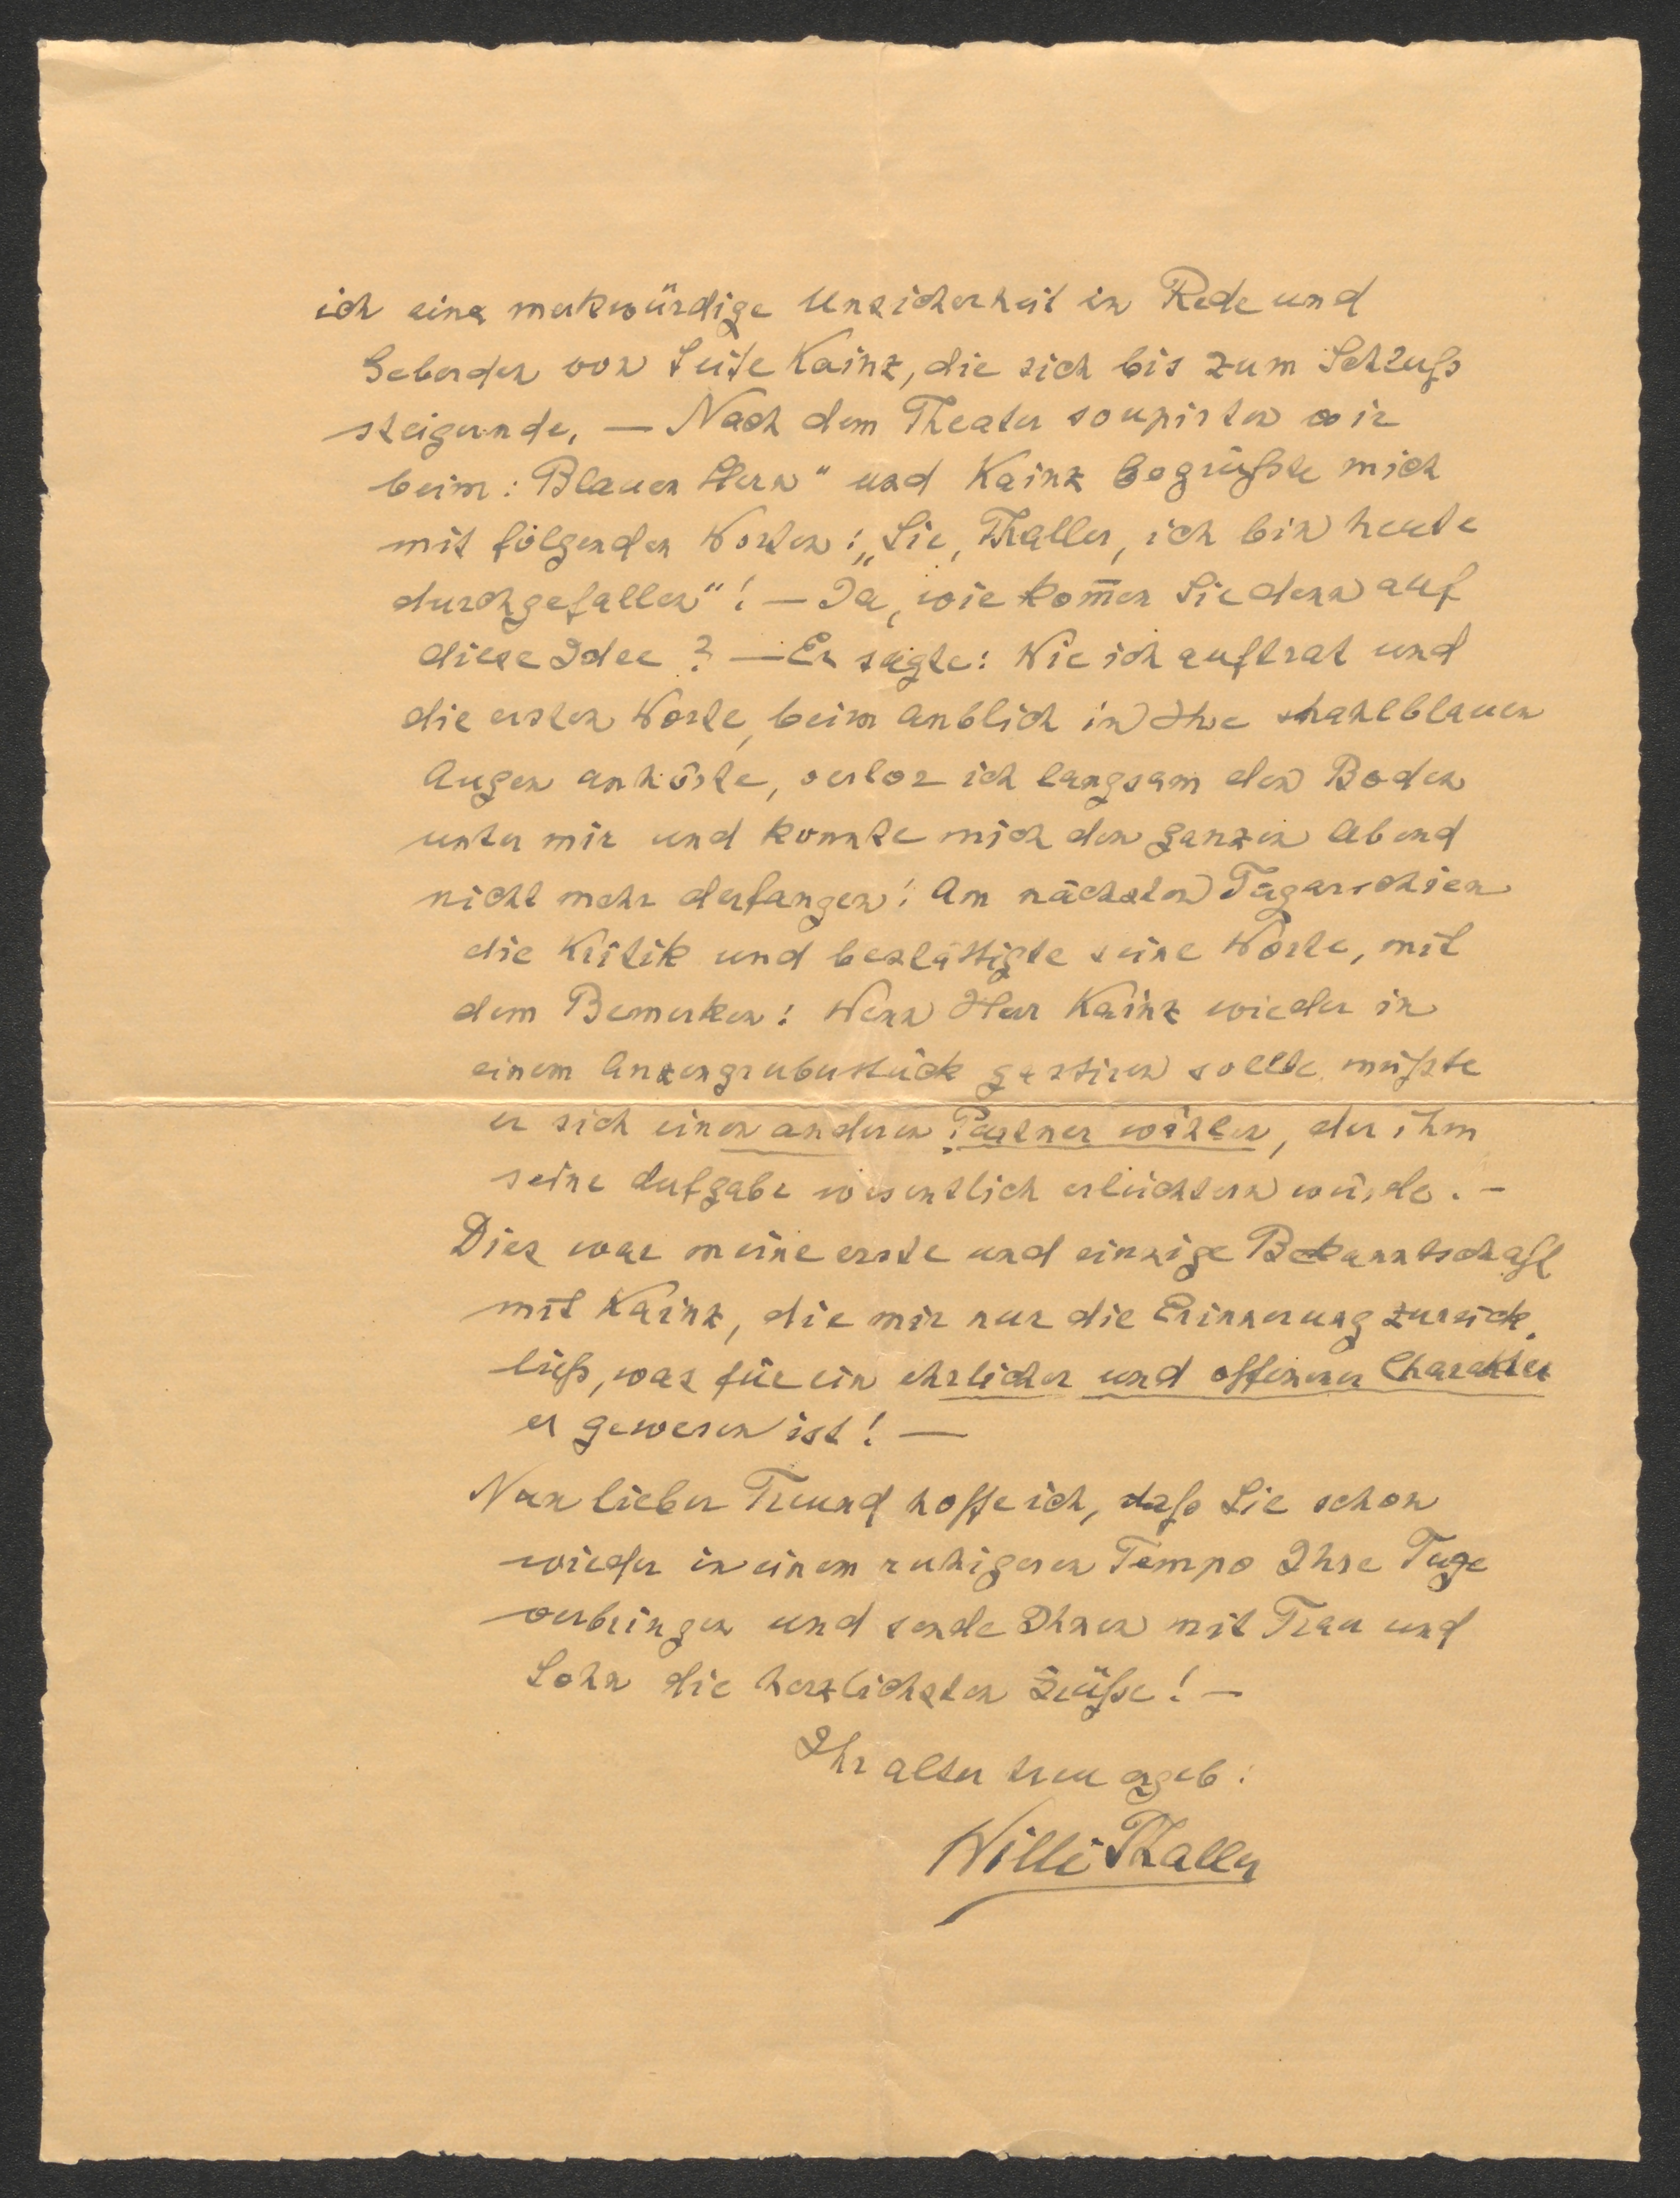 ich eine merkwürdige Unsicherheit in Rede und
Geberden von Seite Kainz, die sich bis zum Schluß
steigernde, — Nach dem Theater soupirten wir
beim: Blauen Stern" und Kainz begrüßte mich
mit folgenden Worten: „Sie, Thaller, ich bin heute
durchgefallen"! — Ja, wie kom̄en Sie denn auf
diese Idee? — Er sagte: Wie ich auftrat und
die ersten Worte, beim Anblick in Ihre stahlblauen
Augen anhörte, verlor ich langsam den Boden
unter mir und konnte mich den ganzen Abend
nicht mehr derfangen! Am nächsten Tag erschien
die Kritik und bestättigte seine Worte, mit
dem Bemerken: Wenn Herr Kainz wieder in
einem Anzengruberstück gastiren sollte, müßte
er sich einen anderen Partner wählen, der ihm
seine Aufgabe wesentlich erleichtern würde. —
Dies war meine erste und einzige Bekanntschaft
mit Kainz, die mir nur die Erinnerung zurück,
ließ, was für ein ehrlicher und offenener Charakter
er gewesen ist! —
Nun lieber Freund hoffe ich, daß Sie schon
wieder in einem ruhigeren Tempo Ihre Tage
verbringen und sende Ihnen mit Frau und
Sohn die herzlichsten Grüße! —
Ihr alter treu ergeb:
Willi Thaller